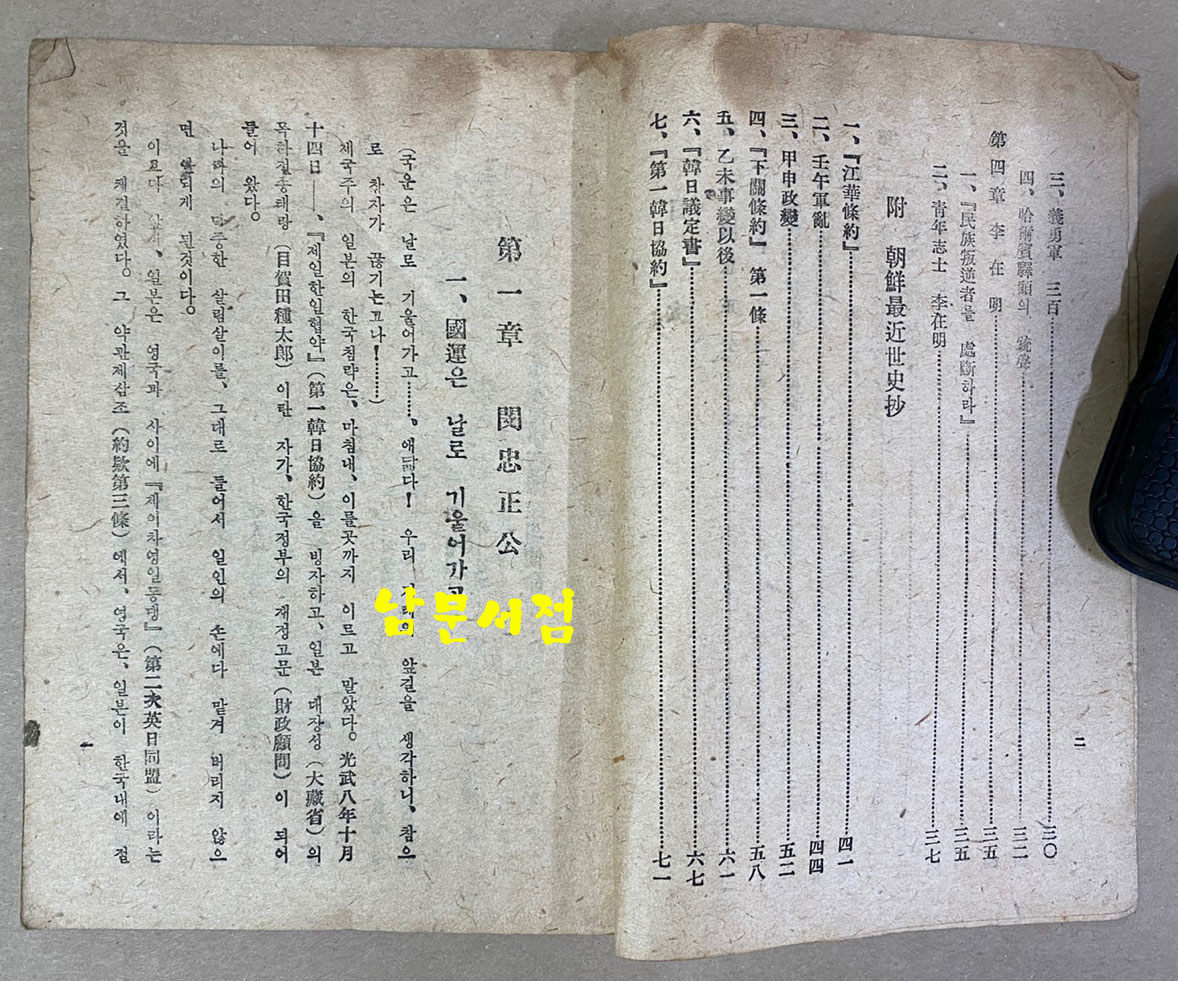 三、義勇軍 三百……三〇
四、哈爾賓驛頭의 銃聲……三二
第四章 李在明……三五
一、『民族叛逆者를 處斷하라』……三五
二、靑年志士 李在明……三七
附 朝鮮最近世史抄
一、『江華條約』……四一
二、壬午軍亂……四四
三、甲申政變……五二
四、『下關條約』 第一條……五八
五、乙未事變以後……六一
六、『韓日議定書』……六七
七、『第一韓日協約』……七一
二
第一章 閔忠正公
一、國運은 날로 기울어가고
(국운은 날로 기울어가고……、애닯다! 우리 앞길을 생각하니、참으
로 찬자가 끊기는고나!………)
제국주의 일본의 한국침략은、마침내、이를곳까지 이르고 말았다。光武八年十月
十四日――、『제일한일협약』(第一韓日協約)을 빙자하고、일본 대장성(大藏省)의
목하전종태랑(目賀田種太郞)이란 자가、한국정부의 재정고문(財政顧問)이 되어
들어 왔다。
나라의 살림살이를、그대로 들어서 일인의 손에다 맡겨 버리지 않으
면 안되게 된것이다。
이보다 일본은 영국과 사이에『제이차영일동맹』(第二次英日同盟)이라는
것을 체결하였다。그 약관제삼조(約欵第三條)에서、영국은、일본이 한국내에 절
一
남문서점